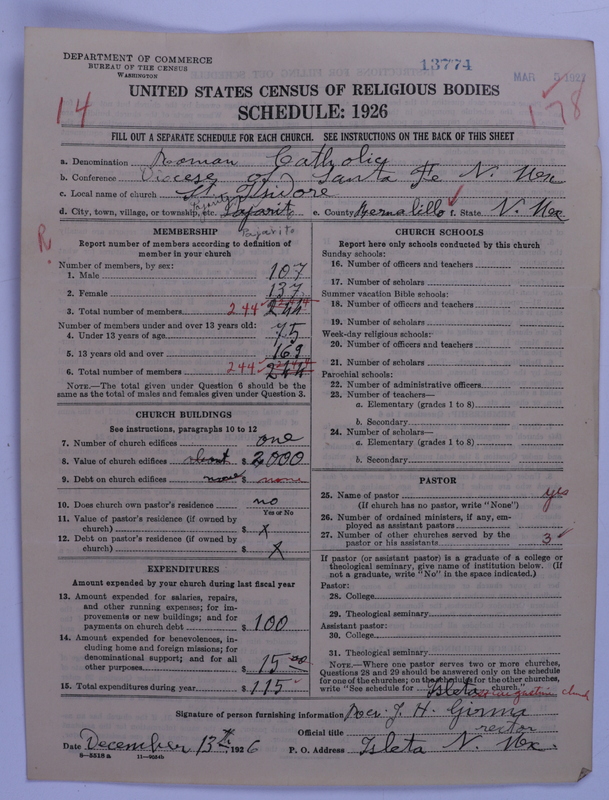 DEPARTMENT OF COMMERCE
BUREAU OF THE CENSUS
WASHINGTON
13774
MAR 5 1927
UNITED STATES CENSUS OF RELIGIOUS BODIES
SCHEDULE: 1926
14
178
FILL OUT A SEPARATE SCHEDULE FOR EACH CHURCH. SEE INSTRUCTIONS ON THE BACK OF THIS SHEET
a. Denomination Roman Catholic
b. Conference Diocese of Santa Fe N. Mex
c. Local name of church St. Isidore
d. City, town, village, or township, etc. Pajarito e. County Bernalillo f. State N. Mex
Pajarito
R
MEMBERSHIP
Report number of members according to definition of
member in your church
Number of members, by sex:
1. Male 107
2. Female 137
3. Total number of members 244 244
Number of members under and over 13 years old:
4. Under 13 years of age 75
5. 13 years old and over 169
6. Total number of members 244 244
NOTE.—The total given under Question 6 should be the
same as the total of males and females given under Question 3.
CHURCH BUILDINGS
See instructions, paragraphs 10 to 12
7. Number of church edifices one
8. Value of church edifices about $ 2000
9. Debt on church edifices none $ none
10. Does church own pastor's residence no
Yes or No
11. Value of pastor's residence (if owned by
church) $ x
12. Debt on pastor's residence (if owned by
church) $ x
EXPENDITURES
Amount expended by your church during last fiscal year
13. Amount expended for salaries, repairs,
and other running expenses; for im-
provements or new buildings; and for
payments on church debt $ 100
14. Amount expended for benevolences, in-
cluding home and foreign missions; for
denominational support; and for all
other purposes $ 15 00
15. Total expenditures during year $ 115
CHURCH SCHOOLS
Report here only schools conducted by this church
Sunday schools:
16. Number of officers and teachers
17. Number of scholars
Summer vacation Bible schools:
18. Number of officers and teachers
19. Number of scholars
Week-day religious schools:
20. Number of officers and teachers
21. Number of scholars
Parochial schools:
22. Number of administrative officers
23. Number of teachers—
a. Elementary (grades 1 to 8)
b. Secondary
24. Number of scholars—
a. Elementary (grades 1 to 8)
b. Secondary
PASTOR
25. Name of pastor yes
(If church has no pastor, write "None")
26. Number of ordained ministers, if any, em-
ployed as assistant pastors
27. Number of other churches served by the
pastor or his assistants 3
If pastor (or assistant pastor) is a graduate of a college or
theological seminary, give name of institution below. (If
not a graduate, write "No" in the space indicated.)
Pastor:
28. College
29. Theological seminary
Assistant pastor:
30. College
31. Theological seminary
NOTE.—Where one pastor serves two or more churches,
Questions 28 and 29 should be answered only on the schedule
for one of the churches; on the schedules for the other churches,
write "See schedule for Isleta church."
Signature of person furnishing information Rev. J. H. Girma
Official title rector
Date December 13th 1926 P. O. Address Isleta N. Mex.
8—5518 a 11—9054b